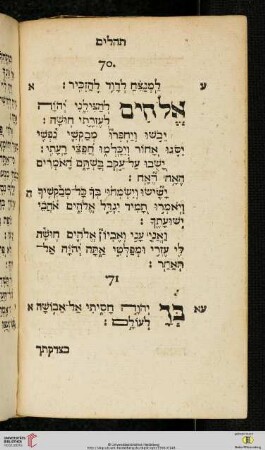 תהלים
70.
ע לַמְנַצֵּחַ לְדָוִד לְהַזְכִּיר : א
אֱלֹהִים לְהַצִּילֵנִי יְהֹוָה
לְעֶזְרָתִי חוּשָׁה :
יֵבשׁוּ וְיַחְפְּרוּ מְבַקְשֵׁי נַפְשִׁי
יִסֹּגוּ אָחוֹר וְיִכָּלְמוּ חֲפֵצֵי רָעָתִי :
יָשֻׁבוּ עַל־עֵקֶב בָּשְׁתָּם הָאֹמְרִים
הֶאָח הֶאָח :
יָשִׂישׂוּ וְיִשְׂמְחוּ בְּךָ כָּל־מְבַקְשֶׁיךָ ה
וְיֹאמְרוּ תָמִיד יִגְדַּל אֱלֹהִים אֹהֲבֵי
יְשׁוּעָתֶךָ :
וַאֲנִי עָנִי וְאֶבְיוֹן אֱלֹהִים חוּשָׁה
לִּי עֶזְרִי וּמְפַלְטִי אַתָּה יְהֹוָה אַל־
תְּאַחַר :
71
עא בְּךָ יְהֹוָה חָסִיתִי אַל־אֵבוֹשָׁה א
לְעוֹלָם :
בצדקתך
UNIVERSITÄTS-
BIBLIOTHEK
HEIDELBERG
© Universitätsbibliothek Heidelberg